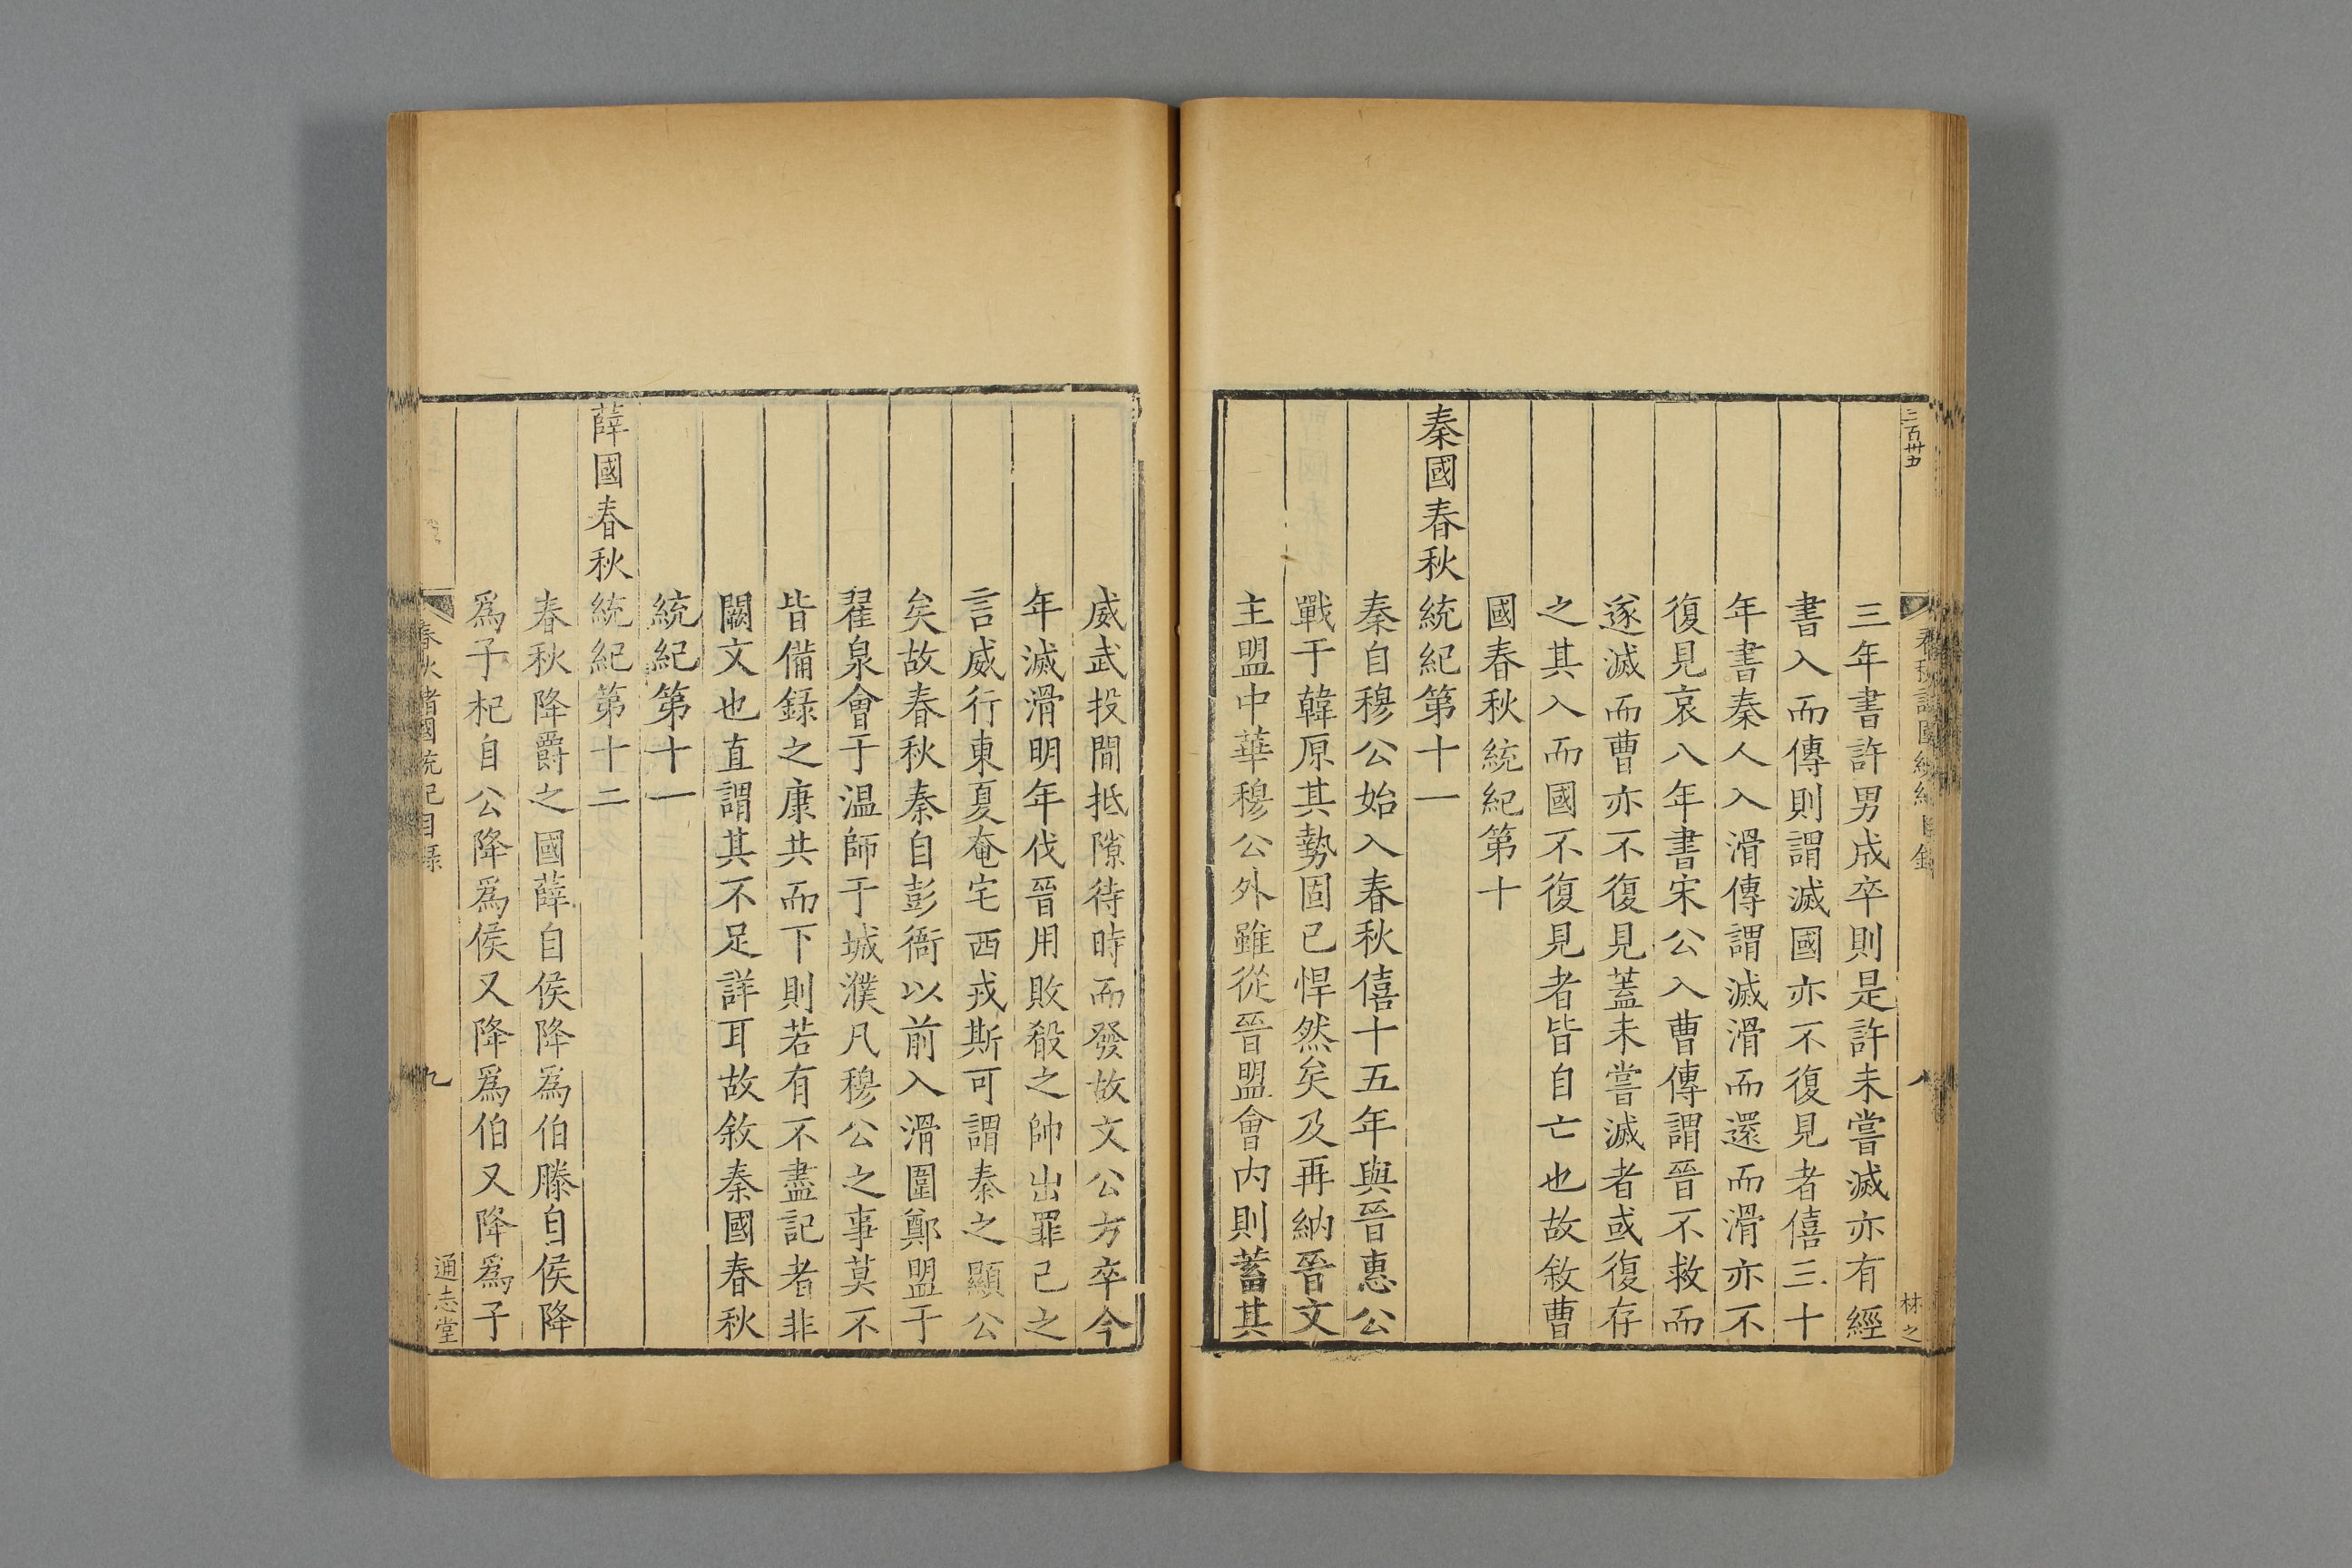 三百卅五
春秋諸國統紀目錄
八
林之
三年書許男成卒則是許未嘗滅亦有經
書入而傳則謂滅國亦不復見者僖三十
年書秦人入滑傳謂滅滑而還而滑亦不
復見哀八年書宋公入曹傳謂晉不救而
遂滅而曹亦不復見蓋未嘗滅者或復存
之其入而國不復見者皆自亡也故敘曹
國春秋統紀第十
秦國春秋統紀第十一
秦自穆公始入春秋僖十五年與晉惠公
戰于韓原其勢固已悍然矣及再納晉文
主盟中華穆公外雖從晉盟會内則蓄其
威武投間抵隙待時而發故文公方卒今
年滅滑明年伐晉用敗殽之帥出罪己之
言威行東夏奄宅西戎斯可謂秦之顯公
矣故春秋秦自彭衙以前入滑圍鄭盟于
翟泉會于温師于城濮凡穆公之事莫不
皆備録之康共而下則若有不盡記者非
闕文也直謂其不足詳耳故敘秦國春秋
統紀第十一
薛國春秋統紀第十二
春秋降爵之國薛自侯降爲伯滕自侯降
爲子杞自公降爲侯又降爲伯又降爲子
春秋諸國統紀目錄
九
通志堂